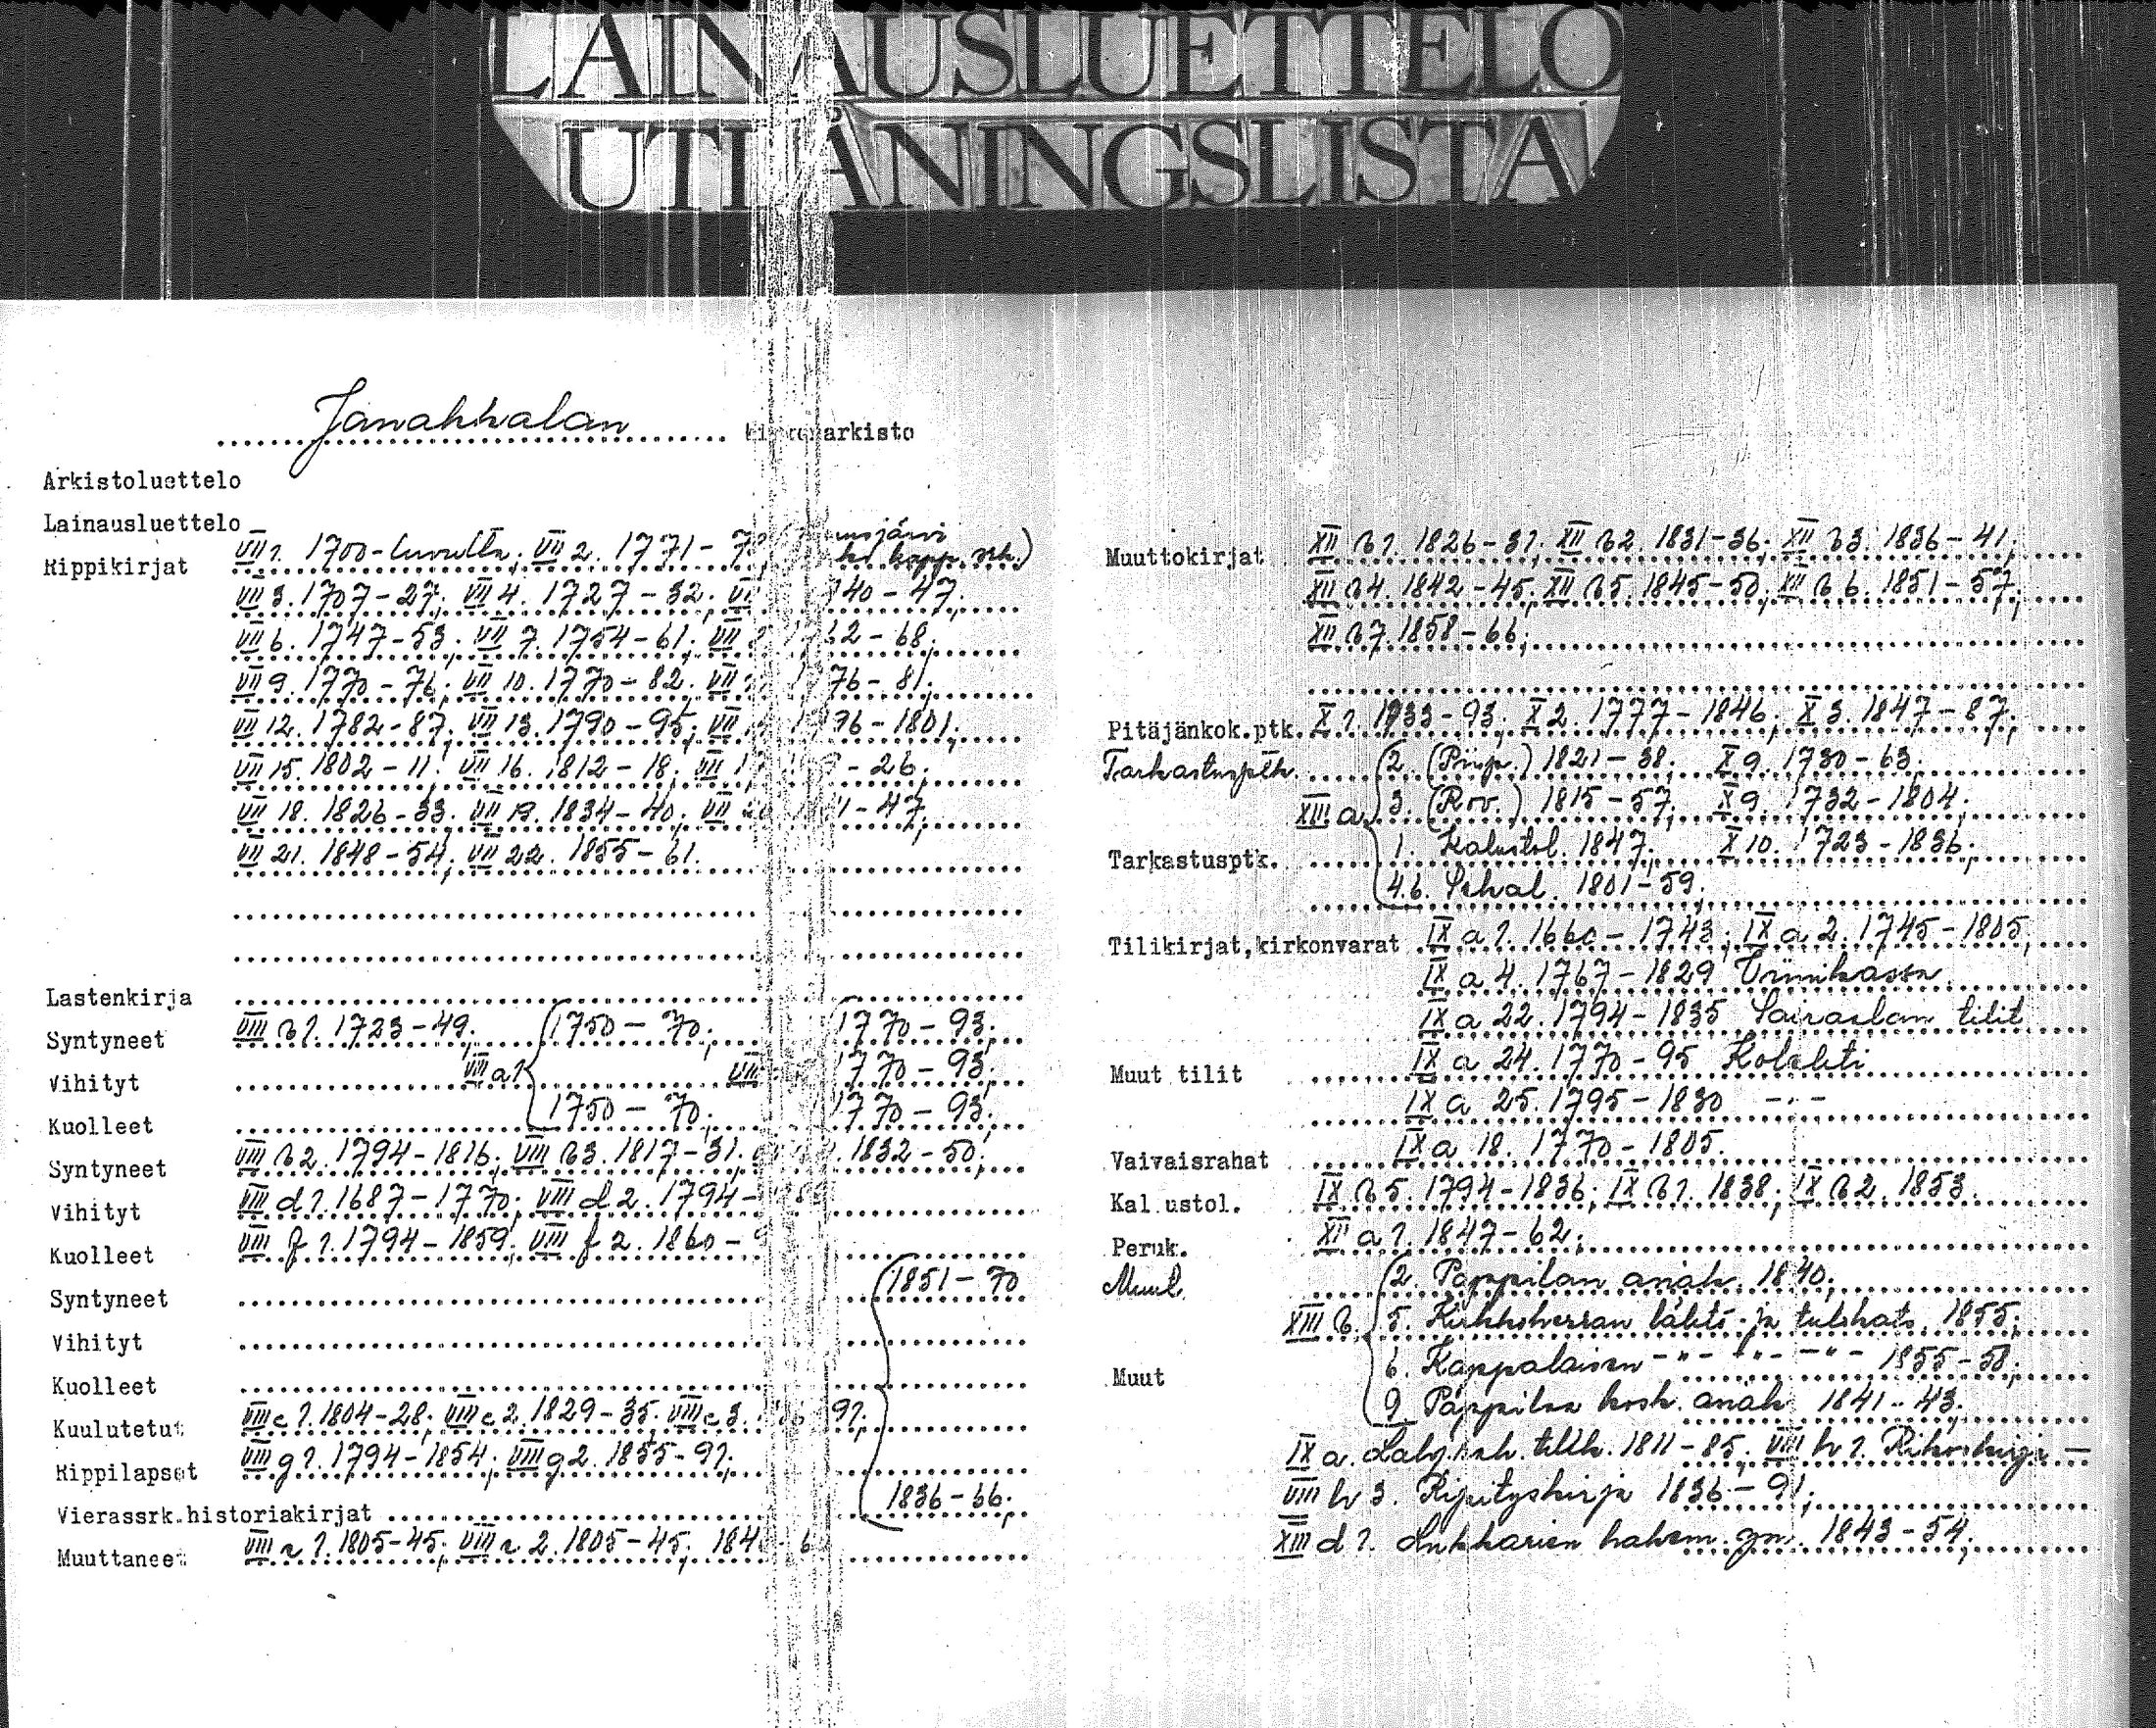 LAINAUSLUETTELO
UTLÅNINGSLISTA
Janakkalan kirkonarkisto
Arkistoluettelo
Lainausluettelo
Rippikirjat VII 1. 1700-luvulta; VII 2. 1771-7
VII 3. 1707-27; VII 4. 1727-32; VII 40-47;
VII 6. 1747-53; VII 7. 1754-61; VII 62-68;
VII 9. 1770-76; VII 10. 1770-82; VII 76-81;
VII 12. 1782-87; VII 13. 1790-95; VII 96-1801;
VII 15. 1802-11; VII 16. 1812-18; VII -26;
VII 18. 1826-33; VII 19. 1834-40; VII 20 -47;
VII 21. 1848-54; VII 22. 1855-61.
Lastenkirja
Syntyneet VIII b1. 1723-49; 1750-70; 1770-93;
Vihityt VIII a1 VIII 1770-93;
Kuolleet 1750-70; 1770-93;
Syntyneet VIII b2. 1794-1816; VIII b3. 1817-31; 1832-50;
Vihityt VIII d1. 1687-1770; VIII d2. 1794-
Kuolleet VIII f1. 1794-1859; VIII f2. 1860-
Syntyneet 1851-70
Vihityt
Kuolleet
Kuulutetut VIII e1. 1804-28; VIII e2. 1829-35; VIII e3. 91;
Rippilapset VIII g1. 1794-1854; VIII g2. 1855-91;
Vierassrk.historiakirjat 1836-66;
Muuttaneet 1. 1805-45; 2. 1805-45;
Muuttokirjat XII b1. 1826-31; XII b2. 1831-36; XII b3. 1836-41;
XII b4. 1842-45; XII b5. 1845-50; XII b6. 1851-57;
XII b7. 1858-66;
Pitäjänkok.ptk. X 1. 1733-93; X 2. 1777-1846; X 3. 1847-87;
Tarkastusptk. 2. (Piisp.) 1821-38; X 9. 1730-63;
XIII a 3. (Rov.) 1815-57; X 9. 1732-1804;
Tarkastusptk. 1. Kalustol. 1847; X 10. 1723-1836;
4.6. Sekal. 1801-59;
Tilikirjat,kirkonvarat IX a 1. 1660-1743; IX a 2. 1745-1805;
IX a 4. 1767-1829 Viinikassa
IX a 22. 1794-1835 Sairaalan tilit
Muut tilit IX a 24. 1770-95 Kolehti
IX a 25. 1795-1830 -"-
Vaivaisrahat IX a 18. 1770-1805.
Kalustol. IX b5. 1794-1836; IX b1. 1838; IX b2. 1853.
Peruk. XI a1. 1847-62;
Muut 2. Pappilan asiak. 1840;
XIII b. 5. Kirkkoherran lähtö- ja tulokats. 1855;
Muut 6. Kappalaisen -"- -"- -"- 1855-58;
9. Pappilaa kosk. asiak. 1841-43;
IX a. Lahj.rah. tilik. 1811-85; VIII h 1. Rikoskirja —
VIII h 3. Ripityskirja 1836-91;
XIII d 1. Lukkarien hakem. ym. 1843-54;